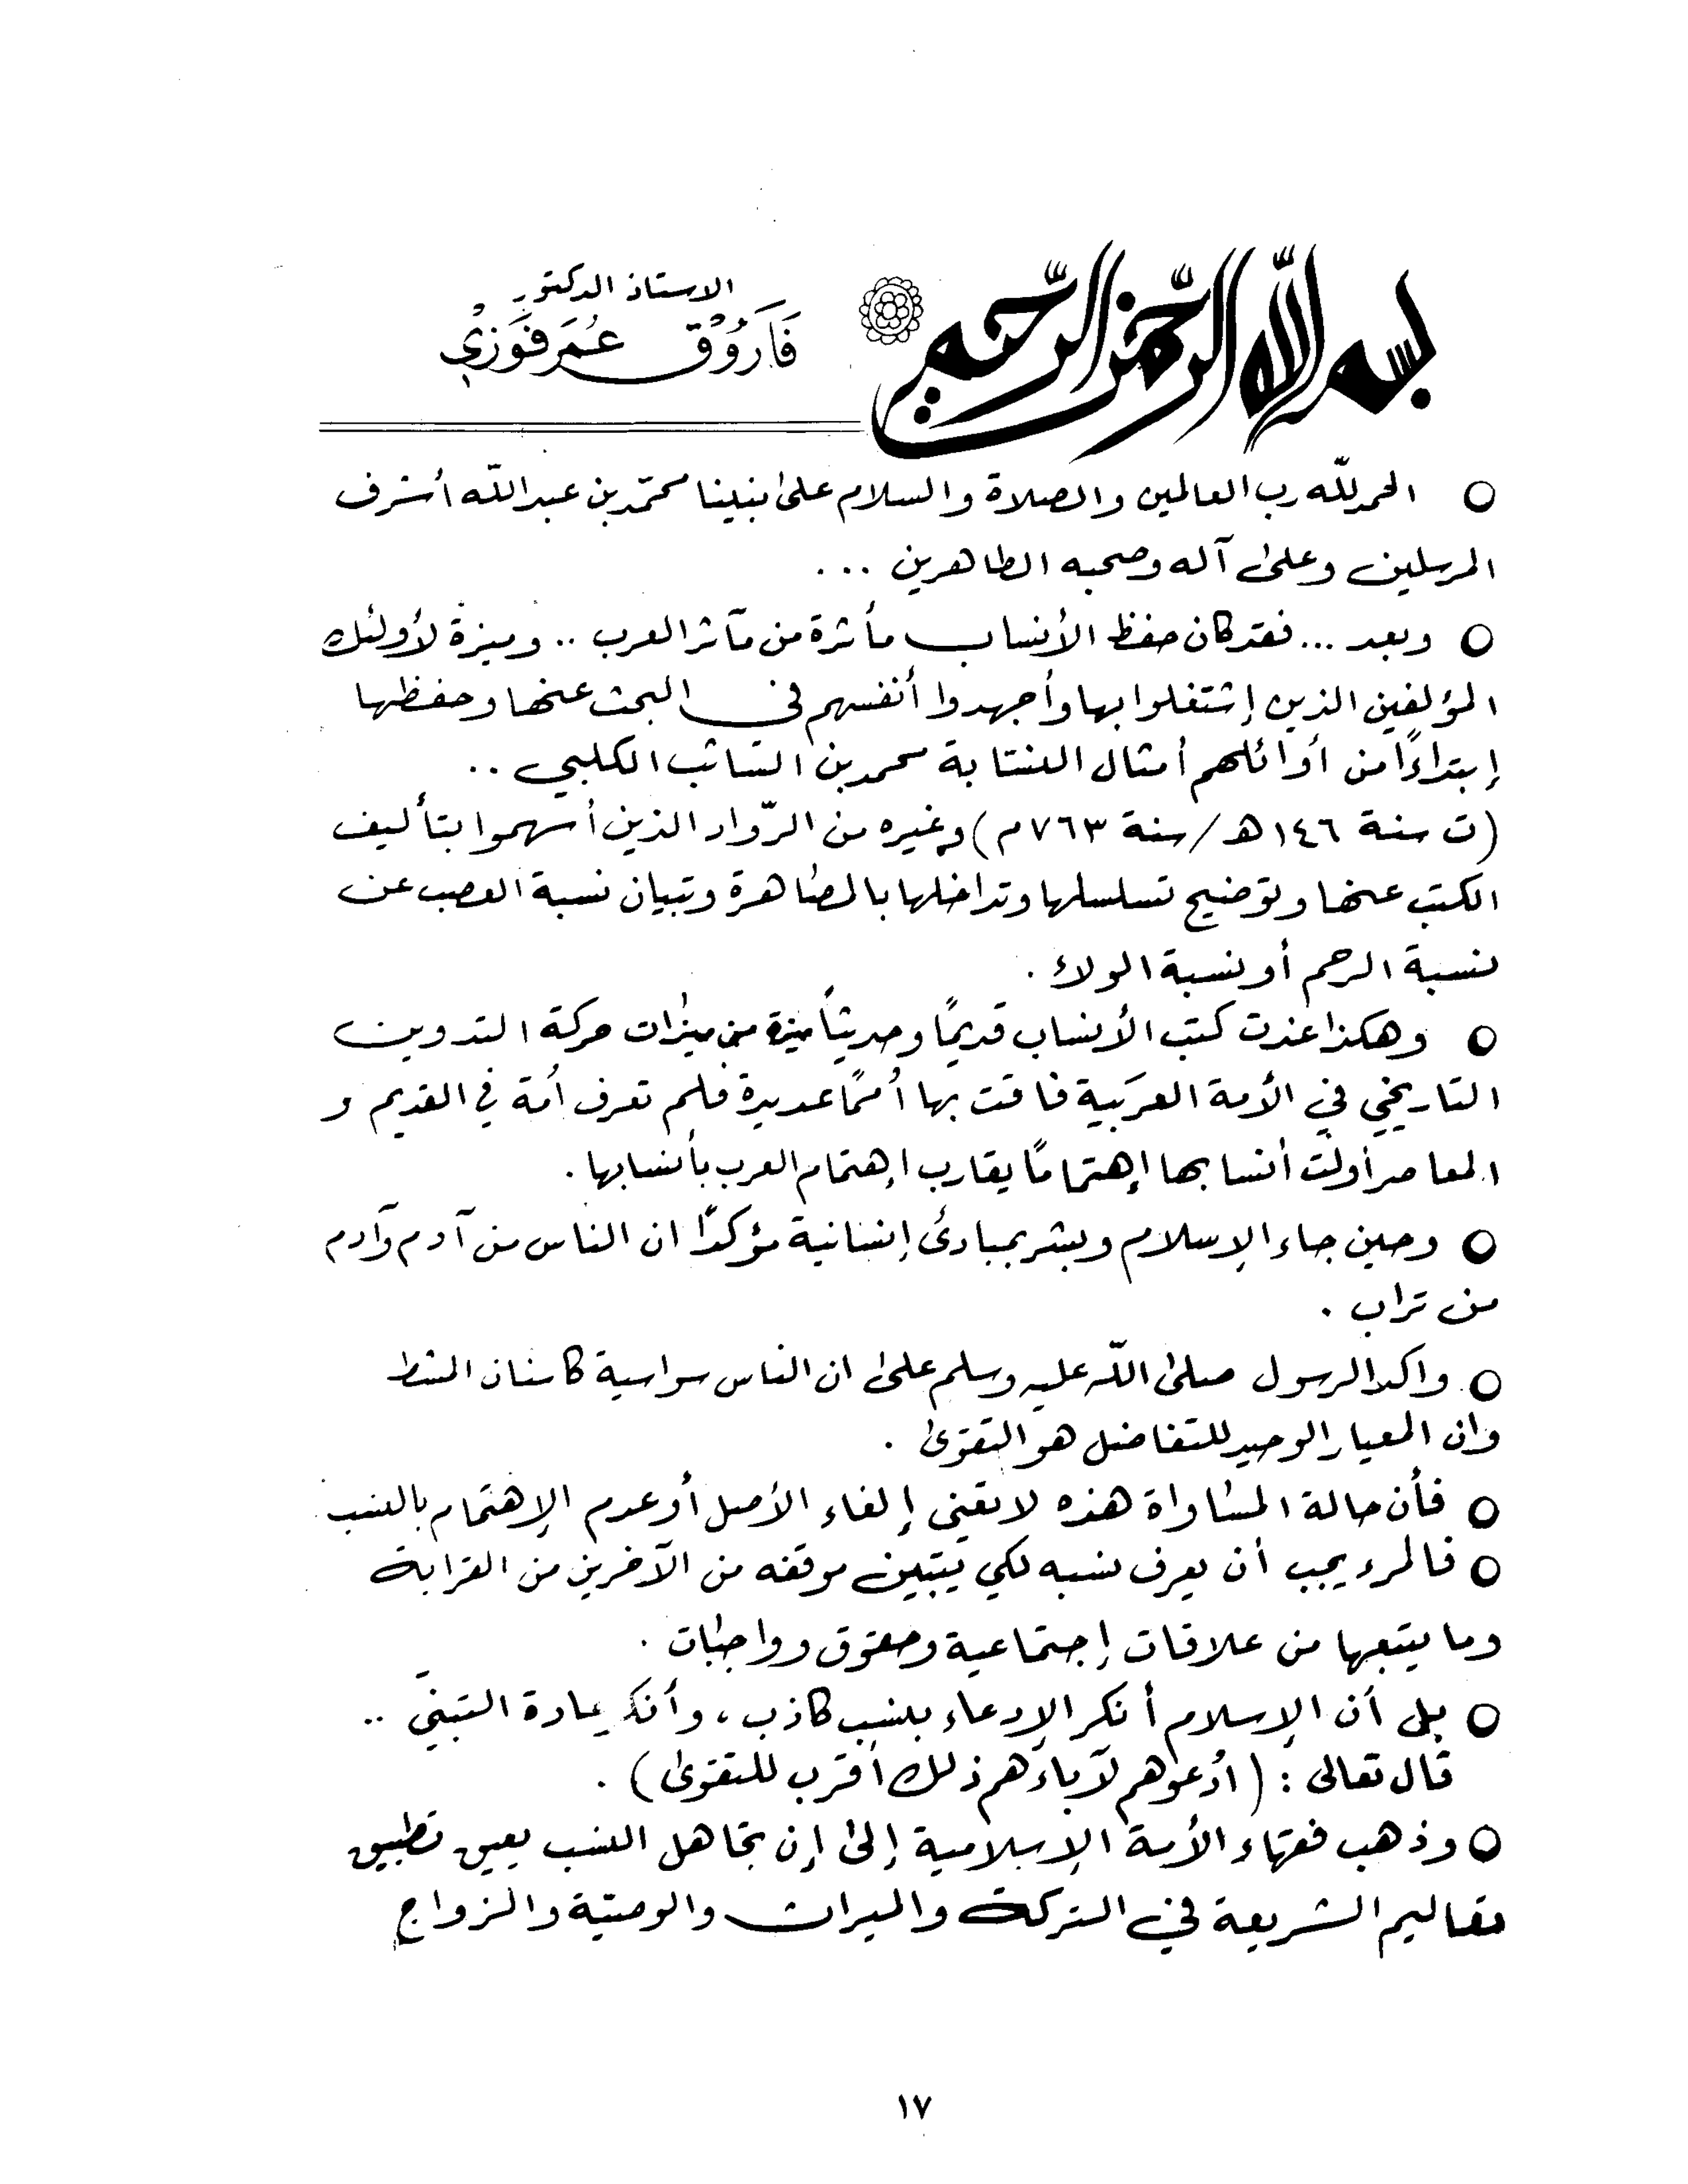 بسم الله الرحمن الرحيم
الاستاذ الدكتور
فَارُوْق عُمَر فَوَزيْ
○ الحمد لله رب العالمين والصلاة والسلام على نبينا محمّد بن عبد الله أشرف
المرسلين وعلى آله وصحبه الطاهرين ...
○ وبعد ... فقد كان حفظ الأنساب مأثرة من مآثر العرب .. وميزة لأولئك
المؤلفين الذين إشتغلوا بها وأجهدوا أنفسهم في البحث عنها وحفظها
إبتداءًا من أوائلهم أمثال النسّابة محمد بن السّائب الكلبي ..
(ت سنة ١٤٦ هـ / سنة ٧٦٣ م) وغيره من الروّاد الذين أسهموا بتأليف
الكتب عنها وتوضيح تسلسلها وتداخلها بالمصاهرة وتبيان نسبة العصب عن
نسبة الرحم أو نسبة الولاء .
○ وهكذا غدت كتب الأنساب قديمًا وحديثاً ميزة من ميزات حركة التدوين
التاريخي في الأمة العرَبية فاقت بها أممًا عديدة فلم تعرف أمة في القديم و
المعاصر أولت أنسابها إهتمامًا يقارب إهتمام العرب بأنسابها .
○ وحين جاء الإسلام وبشر بمبادئ إنسانية مؤكدًا ان الناس من آدم وآدم
من تراب .
○ واكد الرسول صلى اللّه عليه وسلم على ان الناس سواسية كاسنان المشط
وان المعيار الوحيد للتفاضل هو التقوى .
○ فأن حالة المساواة هذه لا تعني إلغاء الأصل أو عدم الإهتمام بالنسب .
○ فالمرء يجب أن يعرف نسبه لكي يتبين موقفه من الآخرين من القرابة
وما يتبعها من علاقات إجتماعية وحقوق وواجبات .
○ بل أن الإسلام أنكر الإدعاء بنسب كاذب ، وأنكر عادة التبنيّ ..
قال تعالى : ( ادُعوهم لآباءهم ذلك أقرب للتقوى ) .
○ وذهب فقهاء الأمة الإسلامية إلى إن تجاهل النسب يعيق تطبيق
تعاليم الشريعة في التركة والميراث والوصيّة والزواج
١٧